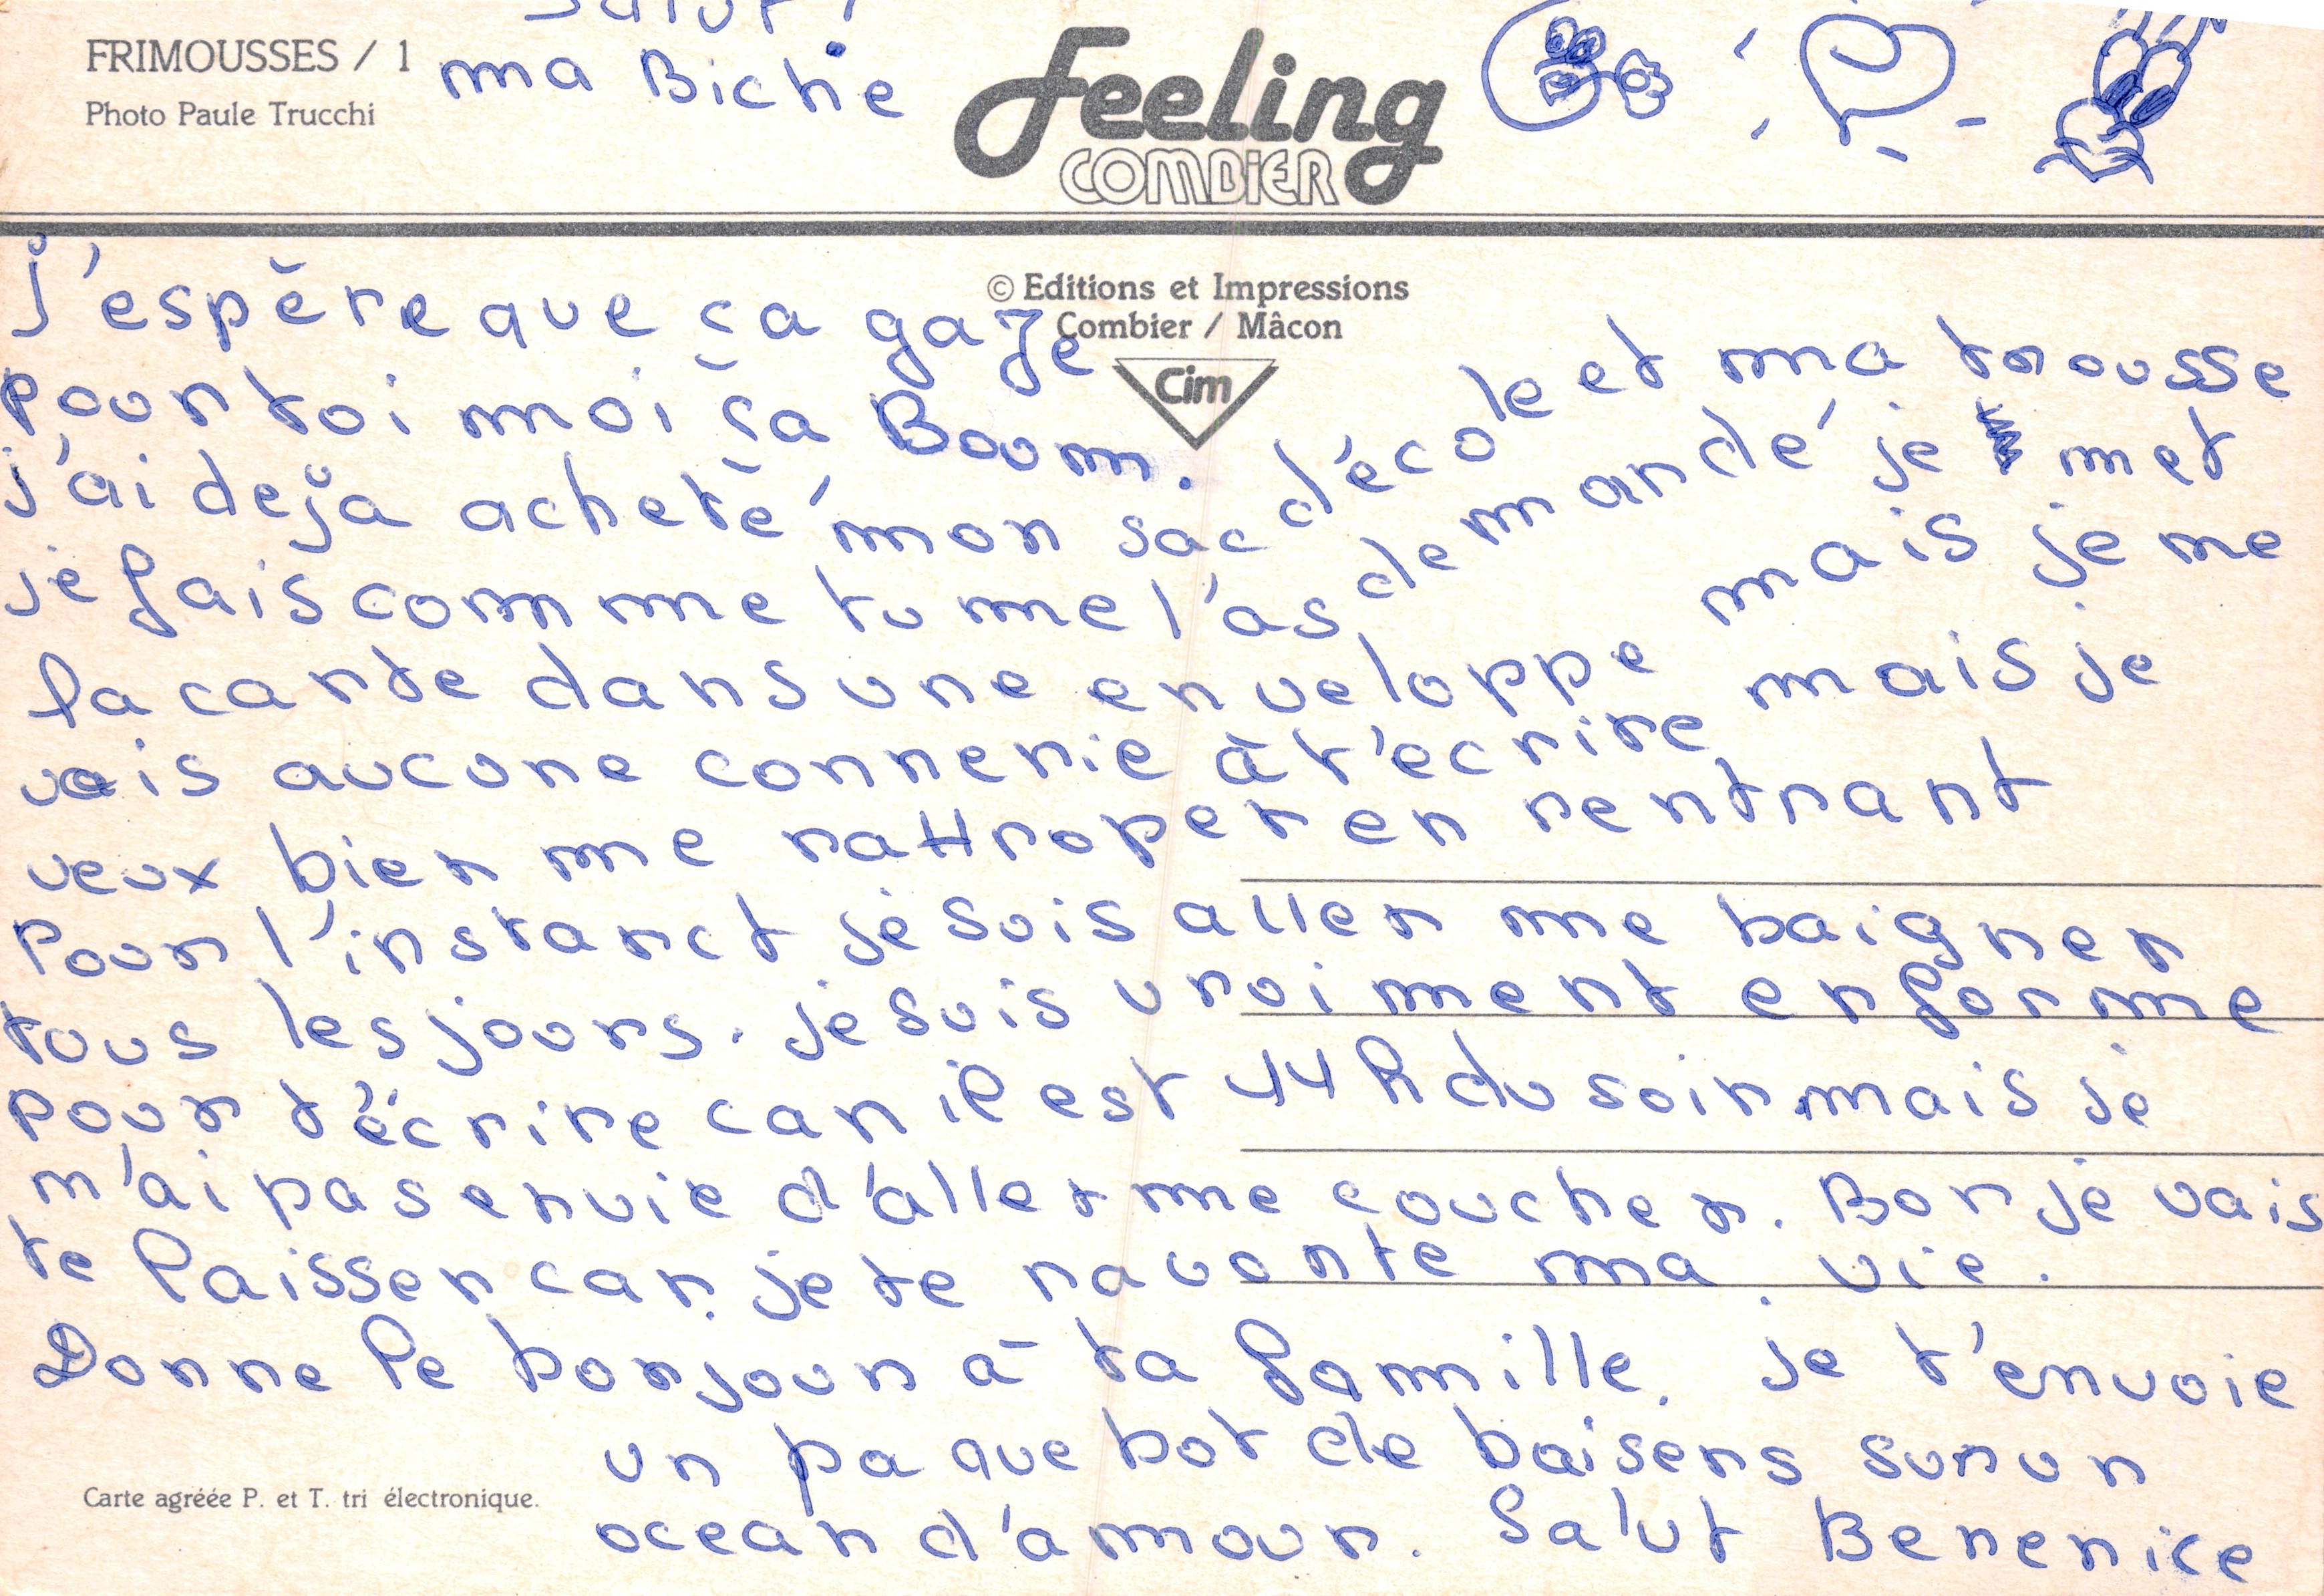 Salut !
FRIMOUSSES / 1
ma Biche
Photo Paule Trucchi
Feeling
COMBIER
© Editions et Impressions
Combier / Mâcon
Cim
J'espère que ça gaze
pour toi moi ça Boom.
j'ai dejà acheté mon sac d'école et ma trousse
je fais comme tu me l'as demandé je met
la carte dans une enveloppe mais je ne
vois aucune connerie à t'écrire mais je
veux bien me rattroper en rentrant
Pour l'instanct je suis aller me baigner
tous les jours. je suis vroiment en forme
pour t'écrire car il est 11 h du soir mais je
n'ai pas envie d'aller me coucher. Bon je vais
te laisser car je te raconte ma vie.
Donne le bonjour à ta famille. je t'envoie
un paquebot de baisers sur un
ocean d'amour. Salut Berenice
Carte agréée P. et T. tri électronique.